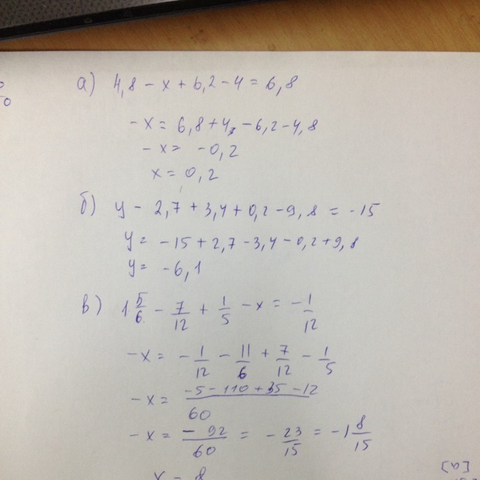 а) 4,8 - x + 6,2 - 4 = 6,8
-x = 6,8 + 4, - 6,2 - 4,8
-x = -0,2
x = 0,2
б) y - 2,7 + 3,4 + 0,2 - 9,8 = -15
y = -15 + 2,7 - 3,4 - 0,2 + 9,8
y = -6,1
в) 1 5/6 - 7/12 + 1/5 - x = -1/12
-x = -1/12 - 11/6 + 7/12 - 1/5
-x = -5 - 110 + 35 - 12/60
-x = -92/60 = -23/15 = -1 8/15